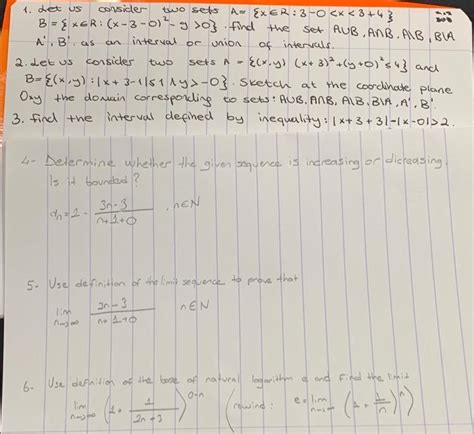 1. Let us consider two sets A = {x∈R : 3-0<x<3+4}
B = {x∈R : (x-3-0)² - y >0}. find the set A∪B, A∩B, A\B, B\A
A', B'. as an interval or union of intervals.
2. Let us consider two sets A = {(x,y) (x+3)²+(y+0)²≤4} and
B={(x,y) : |x+3-1|≤1 ∧ y>-0}. Sketch at the coordinate plane
Oxy the domain corresponding to sets : A∪B, A∩B, A\B, B\A, A', B'.
3. find the interval defined by inequality : |x+3+3|-|x-0|>2.
4- Determine whether the given sequence is increasing or dicreasing.
Is it bounded?
dn = 2 - 3n-3 / n+1+0 , n∈N
5- Use definition of the limit sequence to prove that
lim n→∞ 2n-3 / n+1+0 n∈N
6- Use definition of the base of natural logarithm e and find the limit
lim n→∞ (1 + 1 / 2n+3)^0-n (rewind : e = lim n→∞ (1 + 1/n)^n)